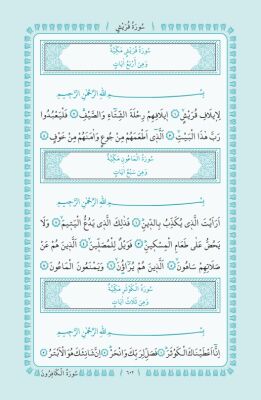 سُورَةُ قُرَيْشٍ
سُورَةُ قُرَيْشٍ مَكِّيَّةٌ
وَهِيَ أَرْبَعُ آيَاتٍ
بِسْمِ اللهِ الرَّحْمٰنِ الرَّحِيمِ
لِإِيلَافِ قُرَيْشٍ ۝ إِيلَافِهِمْ رِحْلَةَ الشِّتَاءِ وَالصَّيْفِ ۝ فَلْيَعْبُدُوا
رَبَّ هٰذَا الْبَيْتِ ۝ الَّذِي أَطْعَمَهُمْ مِنْ جُوعٍ وَآمَنَهُمْ مِنْ خَوْفٍ ۝
سُورَةُ الْمَاعُونِ مَكِّيَّةٌ
وَهِيَ سَبْعُ آيَاتٍ
بِسْمِ اللهِ الرَّحْمٰنِ الرَّحِيمِ
أَرَأَيْتَ الَّذِي يُكَذِّبُ بِالدِّينِ ۝ فَذٰلِكَ الَّذِي يَدُعُّ الْيَتِيمَ ۝ وَلَا
يَحُضُّ عَلَى طَعَامِ الْمِسْكِينِ ۝ فَوَيْلٌ لِلْمُصَلِّينَ ۝ الَّذِينَ هُمْ عَنْ
صَلَاتِهِمْ سَاهُونَ ۝ الَّذِينَ هُمْ يُرَاؤُنَ ۝ وَيَمْنَعُونَ الْمَاعُونَ ۝
سُورَةُ الْكَوْثَرِ مَكِّيَّةٌ
وَهِيَ ثَلَاثُ آيَاتٍ
بِسْمِ اللهِ الرَّحْمٰنِ الرَّحِيمِ
إِنَّا أَعْطَيْنَاكَ الْكَوْثَرَ ۝ فَصَلِّ لِرَبِّكَ وَانْحَرْ ۝ إِنَّ شَانِئَكَ هُوَ الْأَبْتَرُ ۝
٦٠٢
سُورَةُ الْكَافِرُونَ